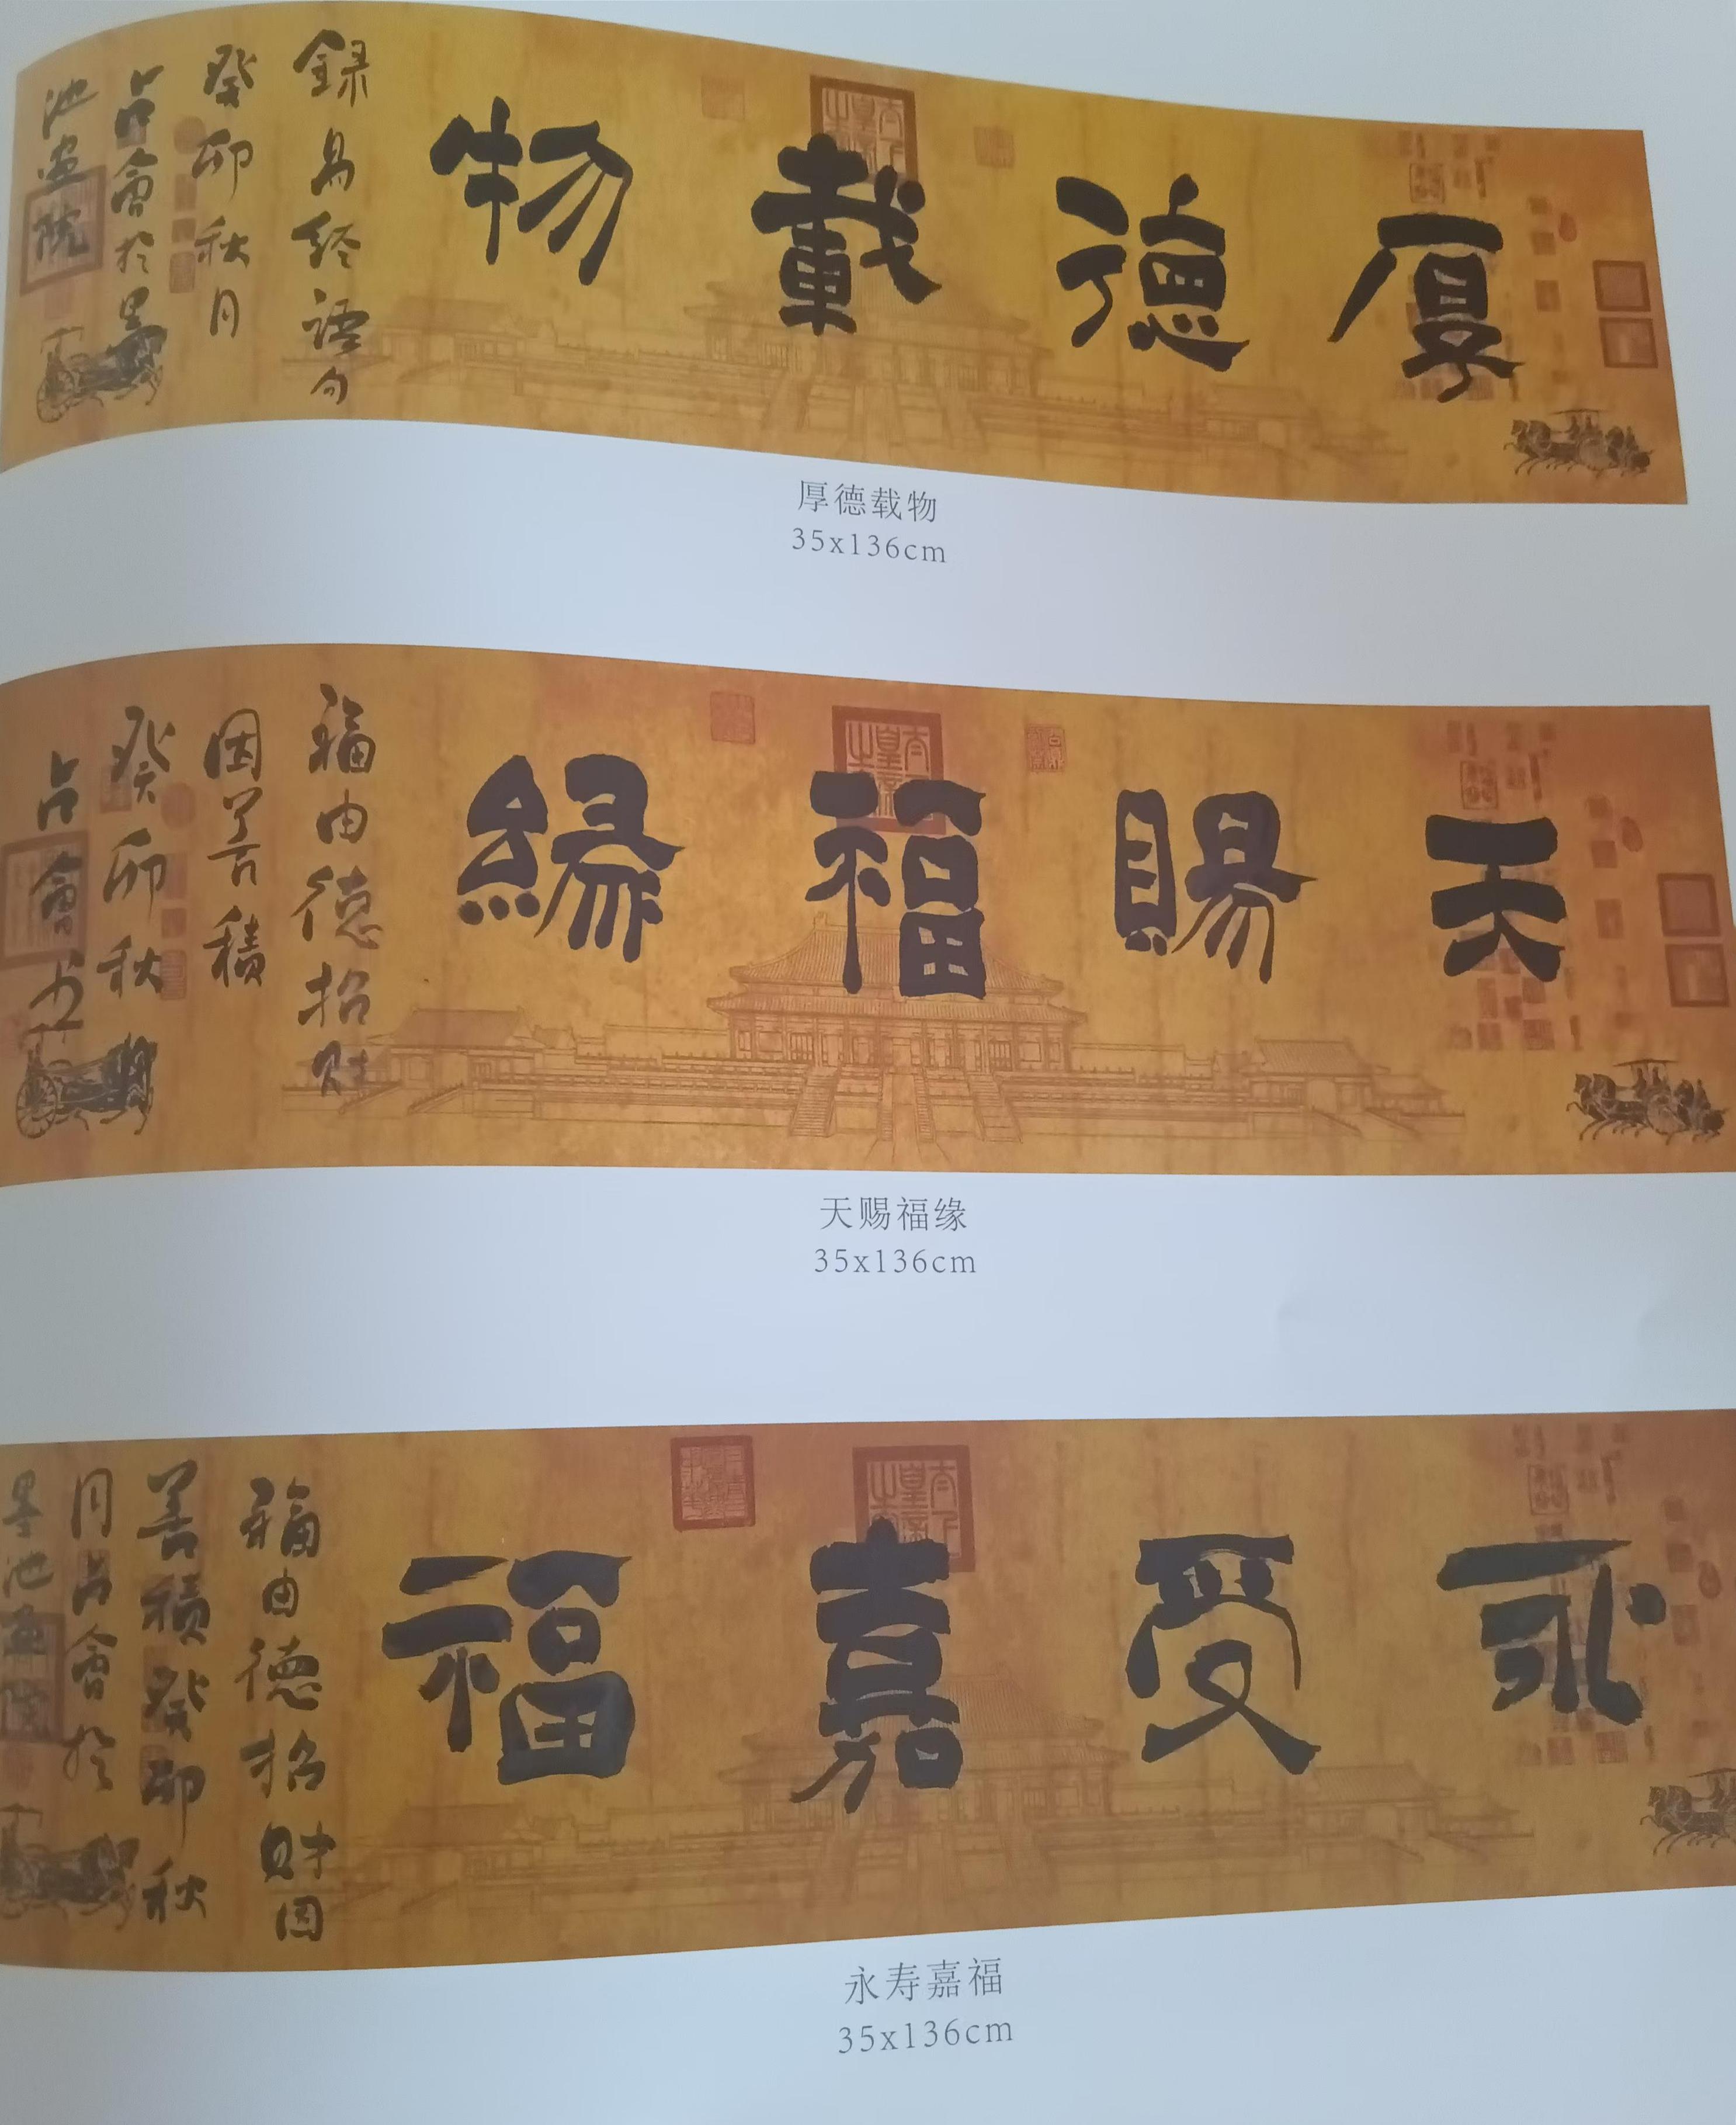 厚德載物
録易经語句
癸卯秋月
占會於墨
池画院
厚德载物
35x136cm
天賜福緣
福由德招财
因善積
癸卯秋
占會书
天赐福缘
35x136cm
永受嘉福
福由德招财因
善積癸卯秋
月占會於
墨池画院
永寿嘉福
35x136cm